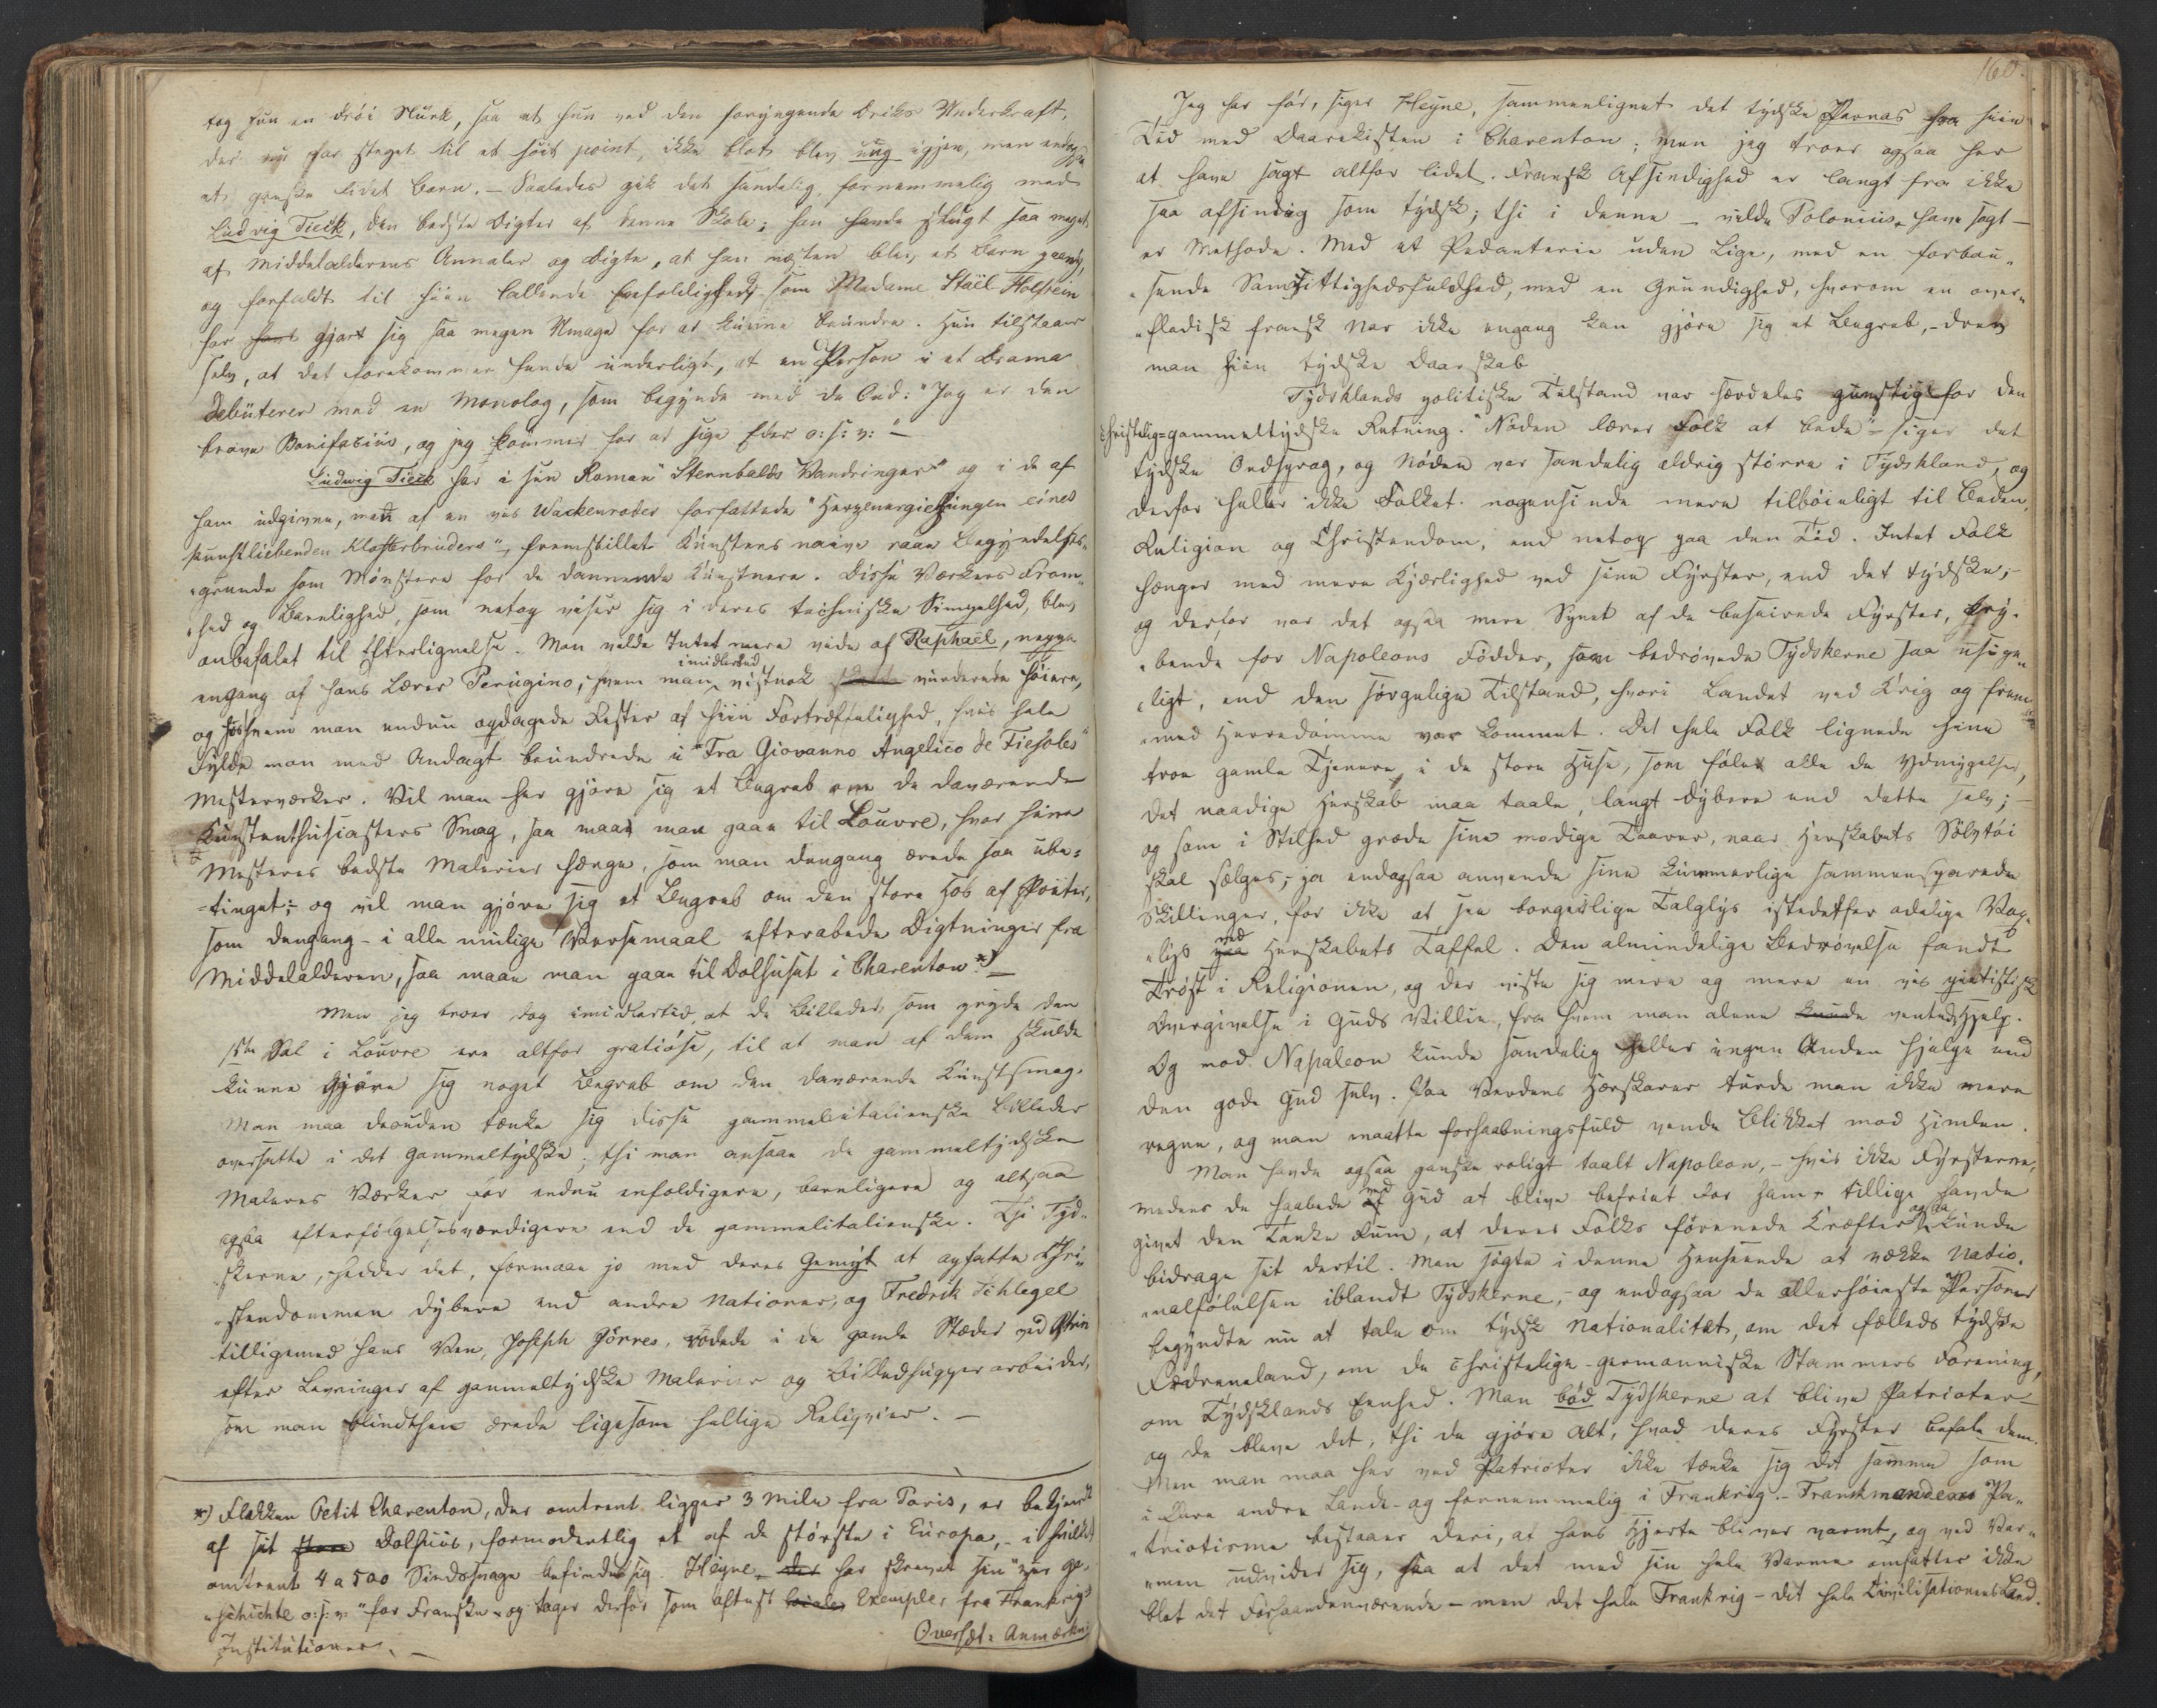 tog hun en drøi Slurk, saa at hun ved den foryngende Driks Underkraft,
der nu har steget til et høit point, ikke blot blev ung igjen, men endogsaa
et ganske lidet Barn. – Saaledes gik det sandelig, fornemmelig med
Ludvig Tieck, den bedste Digter af denne Skole; han havde slugt saa meget
af Middelalderens Annaler og Digte, at han næsten blev et Barn
og forfaldt til hiin lallende Eenfoldighed, som Madame Staël Holstein
har havt gjort sig saa megen Umage for at kunne beundre. Hun tilstaaer
selv, at det forekommer hende underligt, at en Person i et Drama
debüterer med en Monolog, som begynder med de Ord: "Jeg er den
brave Bonifacius, og jeg kommer for at sige Eder o: s: v: " –
Ludwig Tieck har i sin Roman "Sternbalds Vandringer" og i de af
ham udgivne, men af en vis Wackenroder forfattede "Herzenergießungen eines
kunstliebenden Klosterbruders", fremstillet Kunstens naive raae Begyndelses-
grunde som Mønstere for de dannende Kunstnere. Disse Værkers From-
hed og Barnlighed, som netop viser sig i deres techniske Simpelhed, blev
anbefalet til Efterlignelse. Man vilde Intet mere vide af Raphaël, neppe
engang af hans Lærer Perugino, hvem man imidlertid vistnok vurderede høiere,
og hos hvem man endnu opdagede Rester af hiin Fortræffelighed, hvis hele
Fylde man med Andagt beundrede i "Fra Giovanno Angelico de Fiesoles"
Mesterværker. Vil man her gjøre sig et Begreb om de daværende
Kunstenthusiasters Smag, saa maae man gaae til Louvre, hvor hine
Mesteres bedste Malerier hænge, som man dengang ærede saa ube-
tinget; – og vil man gjøre sig et Begreb om den store Hob af Poëter,
som dengang – i alle mulige Versemaal efterabede Digtninger fra
Middelalderen, saa maae man gaae til Dolhuset i Charenton *) –
Men jeg troer dog imidlertid, at de Billeder, som pryde den
1ste Sal i Louvre ere altfor gratiøse, til at man af dem skulde
kunne gjøre sig noget Begreb om den daværende Kunstsmag.
Man maa desuden tænke sig disse gammelitalienske Billeder
oversatte i det Gammeltydske; thi man ansaae de gammeltydske
Maleres Værker for endnu enfoldigere, barnligere og altsaa
ogsaa efterfølgelsesværdigere end de gammelitalienske. Thi Tyd-
skerne, hedder det, formaae jo med deres Gemyt at opfatte Chri-
stendommen dybere end andre Nationer, og Fredrik Schlegel
tilligemed hans Ven, Joseph Görres, rodede i de gamle Stæder ved Rhin
efter Levninger af gammeltydske Malerier og Billedhuggerarbeider,
som man blindthen ærede ligesom hellige Reliqvier. –
*) Flekken Petit Charenton, der omtrent ligger 3 Mile fra Paris, er bekjendt
af sit store Dolhuus, formodentlig et af de største i Europa, – i hvilket
omtrent 4 a 500 Sindssvage befinder sig. Heyne, der har skrevet sin "zur Ge-
schichte o: s: v: " for Franske – og tager derfor som oftest Exempler fra Frankrigs
Institutioner. –
Oversæt: Anmærkn:
160.
Jeg har før, siger Heyne, sammenlignet det tydske Parnas fra hiin
Tid med Daarekisten i Charenton; men jeg troer ogsaa her
at have sagt altfor lidet. Fransk Afsindighed er langt fra ikke
saa afsindig som tydsk; thi i denne – vilde Polonius have sagt –
er Methode. Med et Pedanterie uden Lige, med en forbau-
sende Samvittighedsfuldhed, med en Grundighed, hvorom en over-
fladisk fransk Nar ikke engang kan gjøre sig et Begreb, – drev
man hiin tydske Daarskab
Tydsklands politiske Tilstand var særdeles gunstig for den
christelig-gammeltydske Retning. "Nøden lærer Folk at bede" – siger det
tydske Ordsprog, og Nøden var sandelig aldrig større i Tydskland, og
derfor heller ikke Folket nogensinde mere tilbøieligt til Bøden,
Religion og Christendom, end netop paa den Tid. Intet Folk
hænger med mere Kjærlighed ved sine Fyrster, end det tydske; –
og derfor var det ogsaa mere Synet af de beseirede Fyrster, kry-
bende for Napoleons Fødder, som bedrøvede Tydskerne saa usige-
ligt, end den sørgelige Tilstand, hvori Landet ved Krig og frem-
med Herredømme var kommet. Det hele Folk lignede hine
troe gamle Tjenere i de store Huse, som føler alle de Ydmygelser,
det naadige Herskab maa taale, langt dybere end dette selv; –
og som i Stilhed græde sine modige Taarer, naar Herskabets Sølvtøi
skal sælges; – ja endogsaa anvende sine kummerlige sammensparede
Skillinger, for ikke at see borgerlige Talglys istedetfor adelige Vox-
lys paa ved Herskabets Taffel. Den almindelige Bedrøvelse fandt
Trøst i Religionen, og der viste sig mere og mere en vis pietistisk
Overgivelse i Guds Villie, fra hvem man alene kunde ventedes Hjelp.
Og mod Napoleon kunde sandelig heller ingen Anden hjelpe end
den gode Gud selv. Paa Verdens Hærskarer turde man ikke mere
regne, og man maatte forhaabningsfuld vende Blikket mod Himlen.
Man havde ogsaa ganske roligt taalt Napoleon, – hvis ikke Fyrsterne,
medens de haabede af ved Gud at blive befriet for ham, – tillige havde
givet den Tanke Rum, at deres Folks forenede Kræfter ogsaa kunde
bidrage sit dertil. Man søgte i denne Henseende at vække Natio-
nalfølelsen iblandt Tydskerne, – og endogsaa de allerhøieste Personer
begyndte nu at tale om tydsk Nationalitet, om det fælleds tydske
Fædreneland, om de christelige-germanniske Stammers Forening,
om Tydsklands Eenhed. Man bød Tydskerne at blive Patrioter –
og de bleve det, thi de gjøre Alt, hvad deres Fyrster befale dem.
Men man maa her ved Patrioter ikke tænke sig det samme som
i andre Lande – og fornemmelig i Frankrig. – Franskmandens Pa-
triotisme bestaaer deri, at hans Hjerte bliver varmt, og ved Var-
men udvider sig, saa at det med sin hele Varme omfatter ikke
blot det Forhaandenværende – men det hele Frankrig – det hele Civilisationens Land.